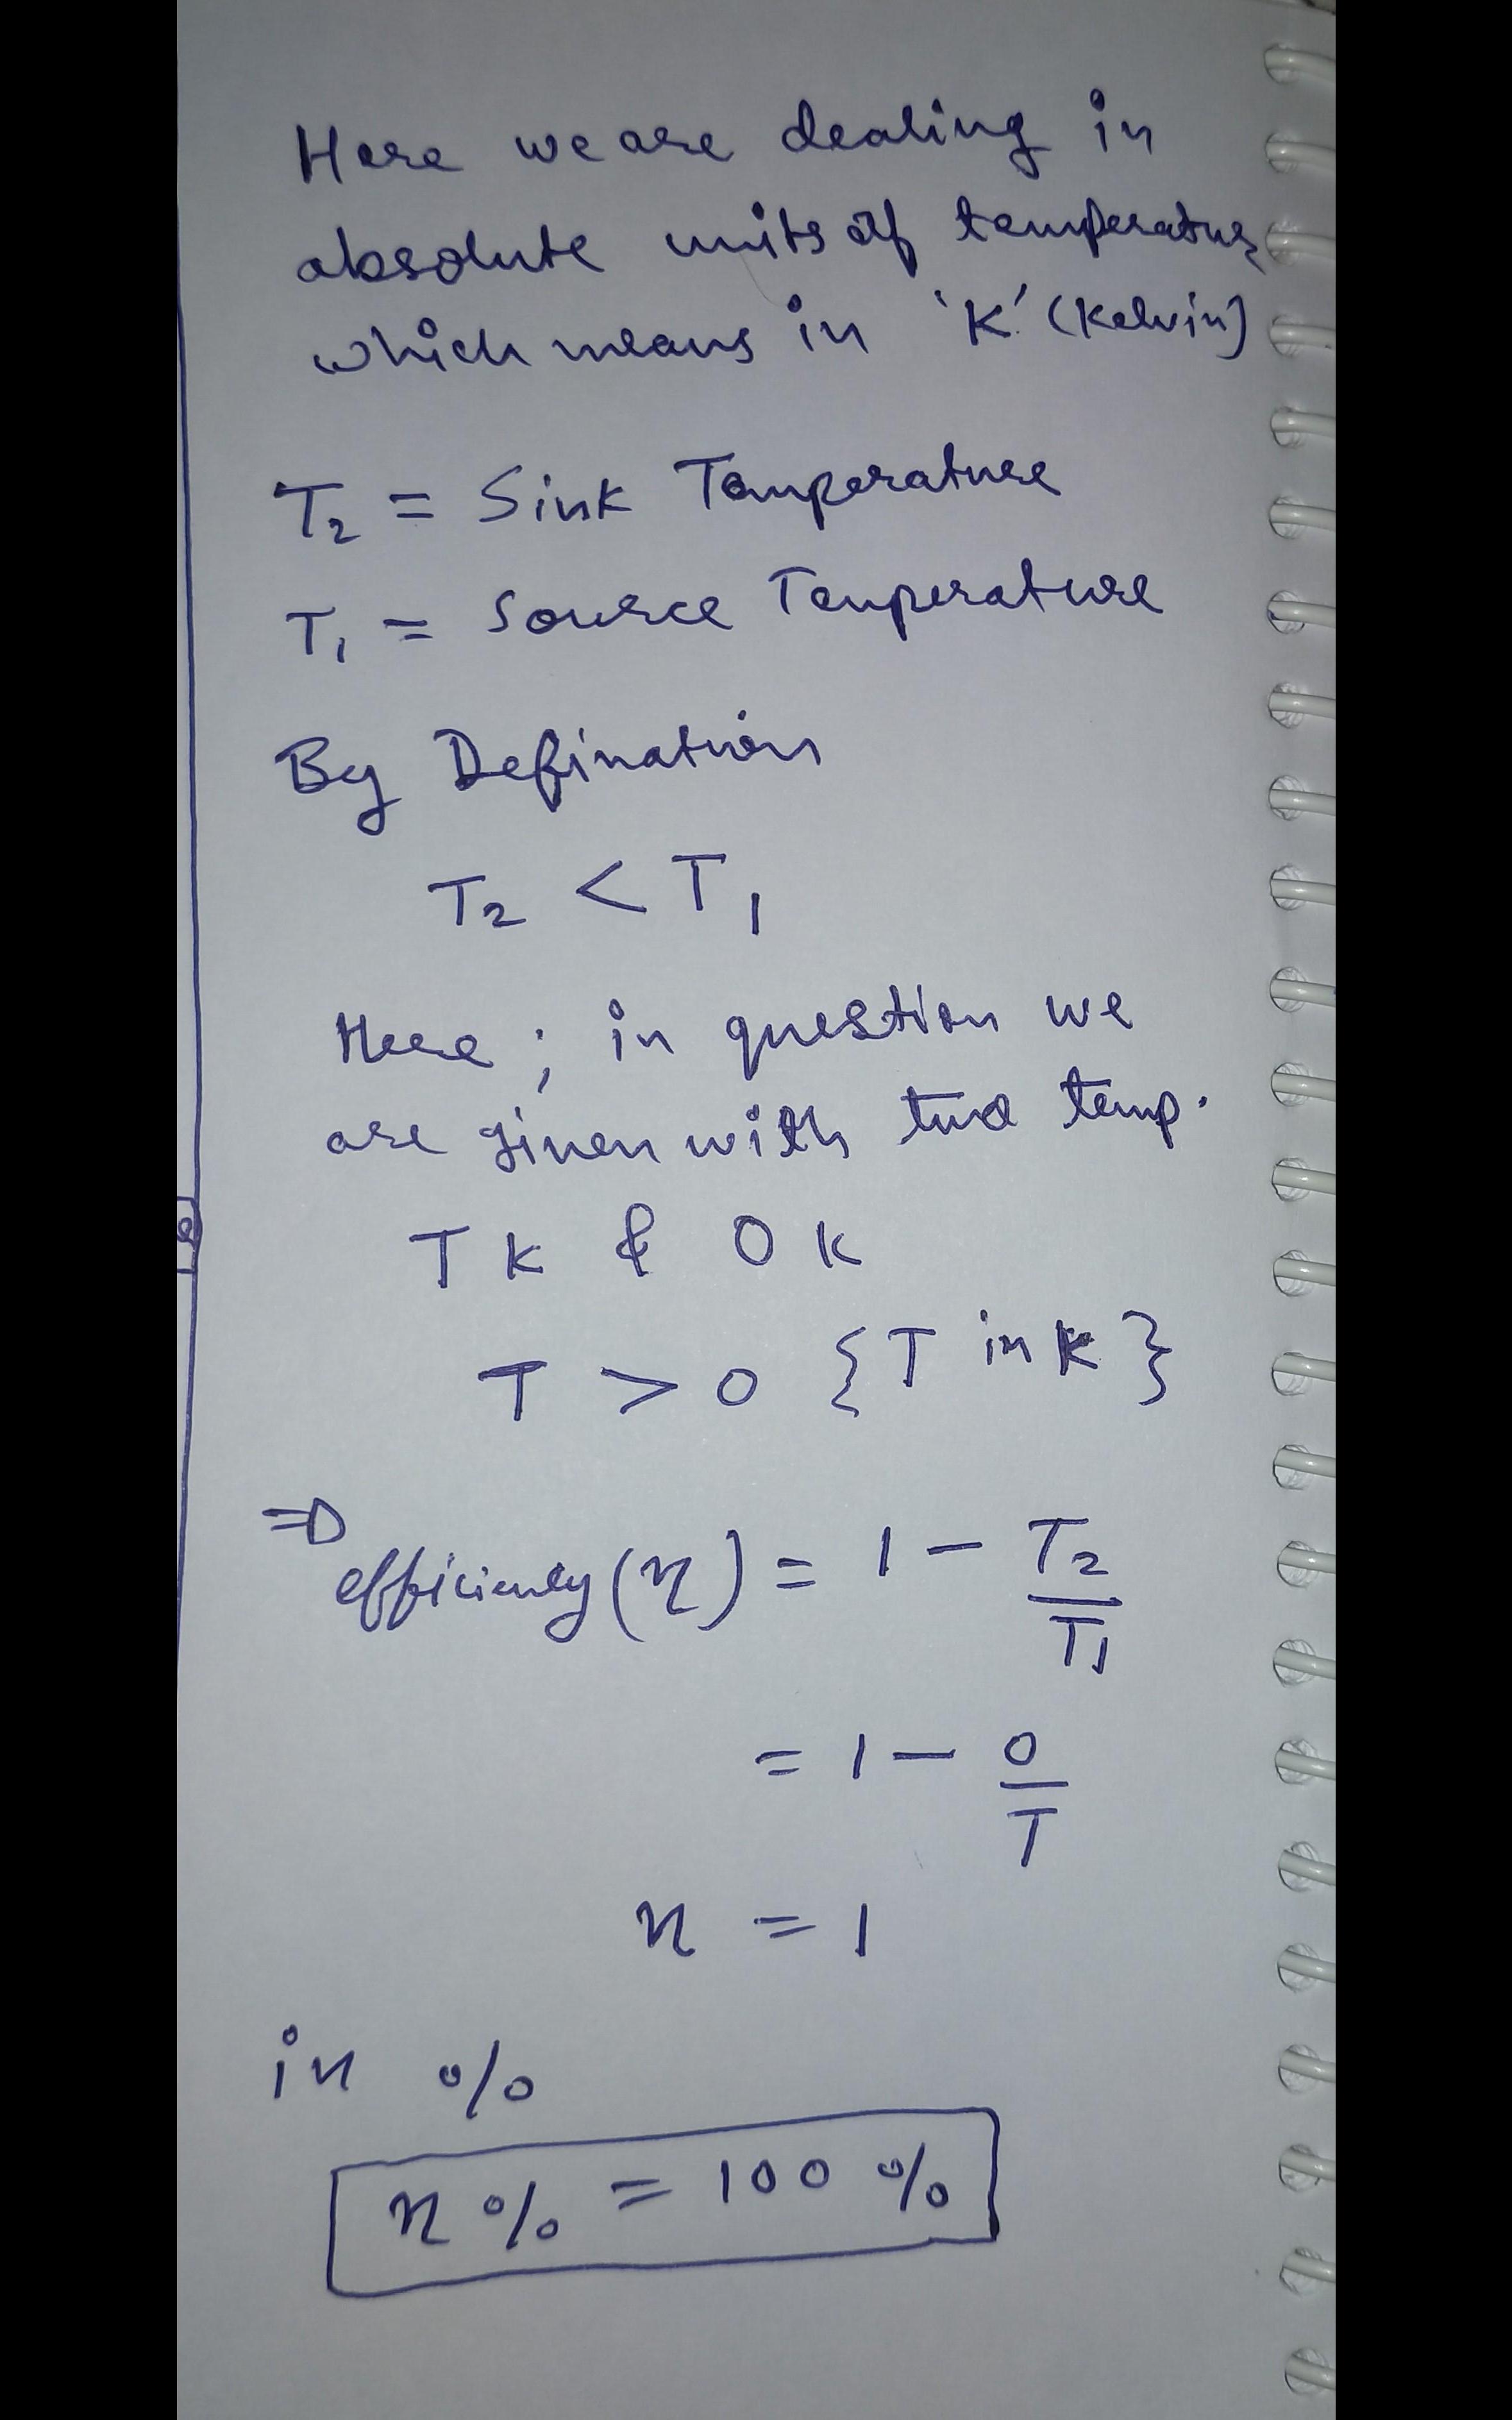 Here we are dealing in
absolute units of temperature
which means in 'K' (Kelvin)
T₂ = Sink Temperature
T₁ = Source Temperature
By Defination
T₂ < T₁
Here ; in question we
are given with two temp.
T K & 0 K
T > 0 {T in K}
⇒ efficiency (η) = 1 - T₂/T₁
= 1 - 0/T
η = 1
in %
η % = 100 %